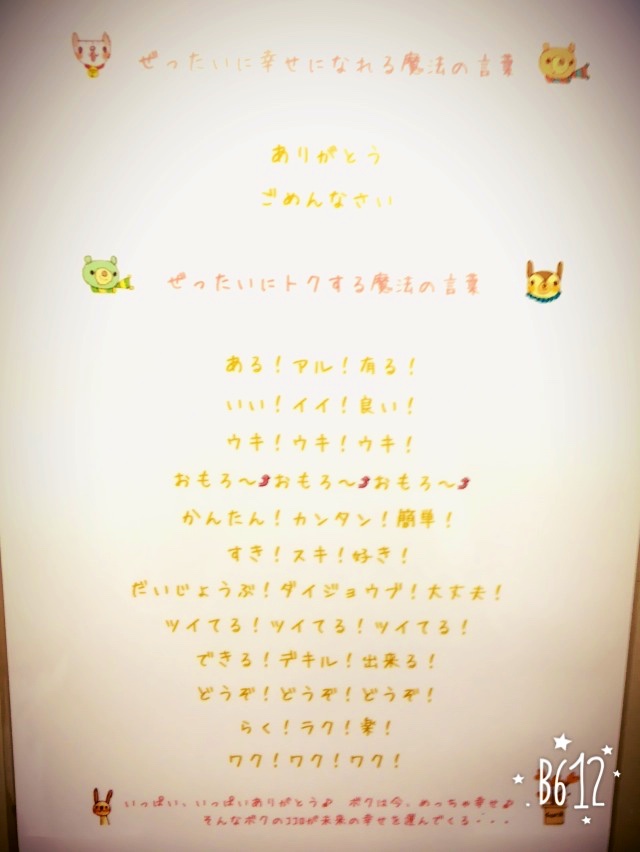 ぜったいに幸せになれる魔法の言葉
ありがとう
ごめんなさい
ぜったいにトクする魔法の言葉
ある！アル！有る！
いい！イイ！良い！
ウキ！ウキ！ウキ！
おもろ〜⤴おもろ〜⤴おもろ〜⤴
かんたん！カンタン！簡単！
すき！スキ！好き！
だいじょうぶ！ダイジョウブ！大丈夫！
ツイてる！ツイてる！ツイてる！
できる！デキル！出来る！
どうぞ！どうぞ！どうぞ！
らく！ラク！楽！
ワク！ワク！ワク！
いっぱい、いっぱいありがとう♪ ボクは今、めっちゃ幸せ♪
そんなボクのココロが未来の幸せを運んでくる・・・
B612